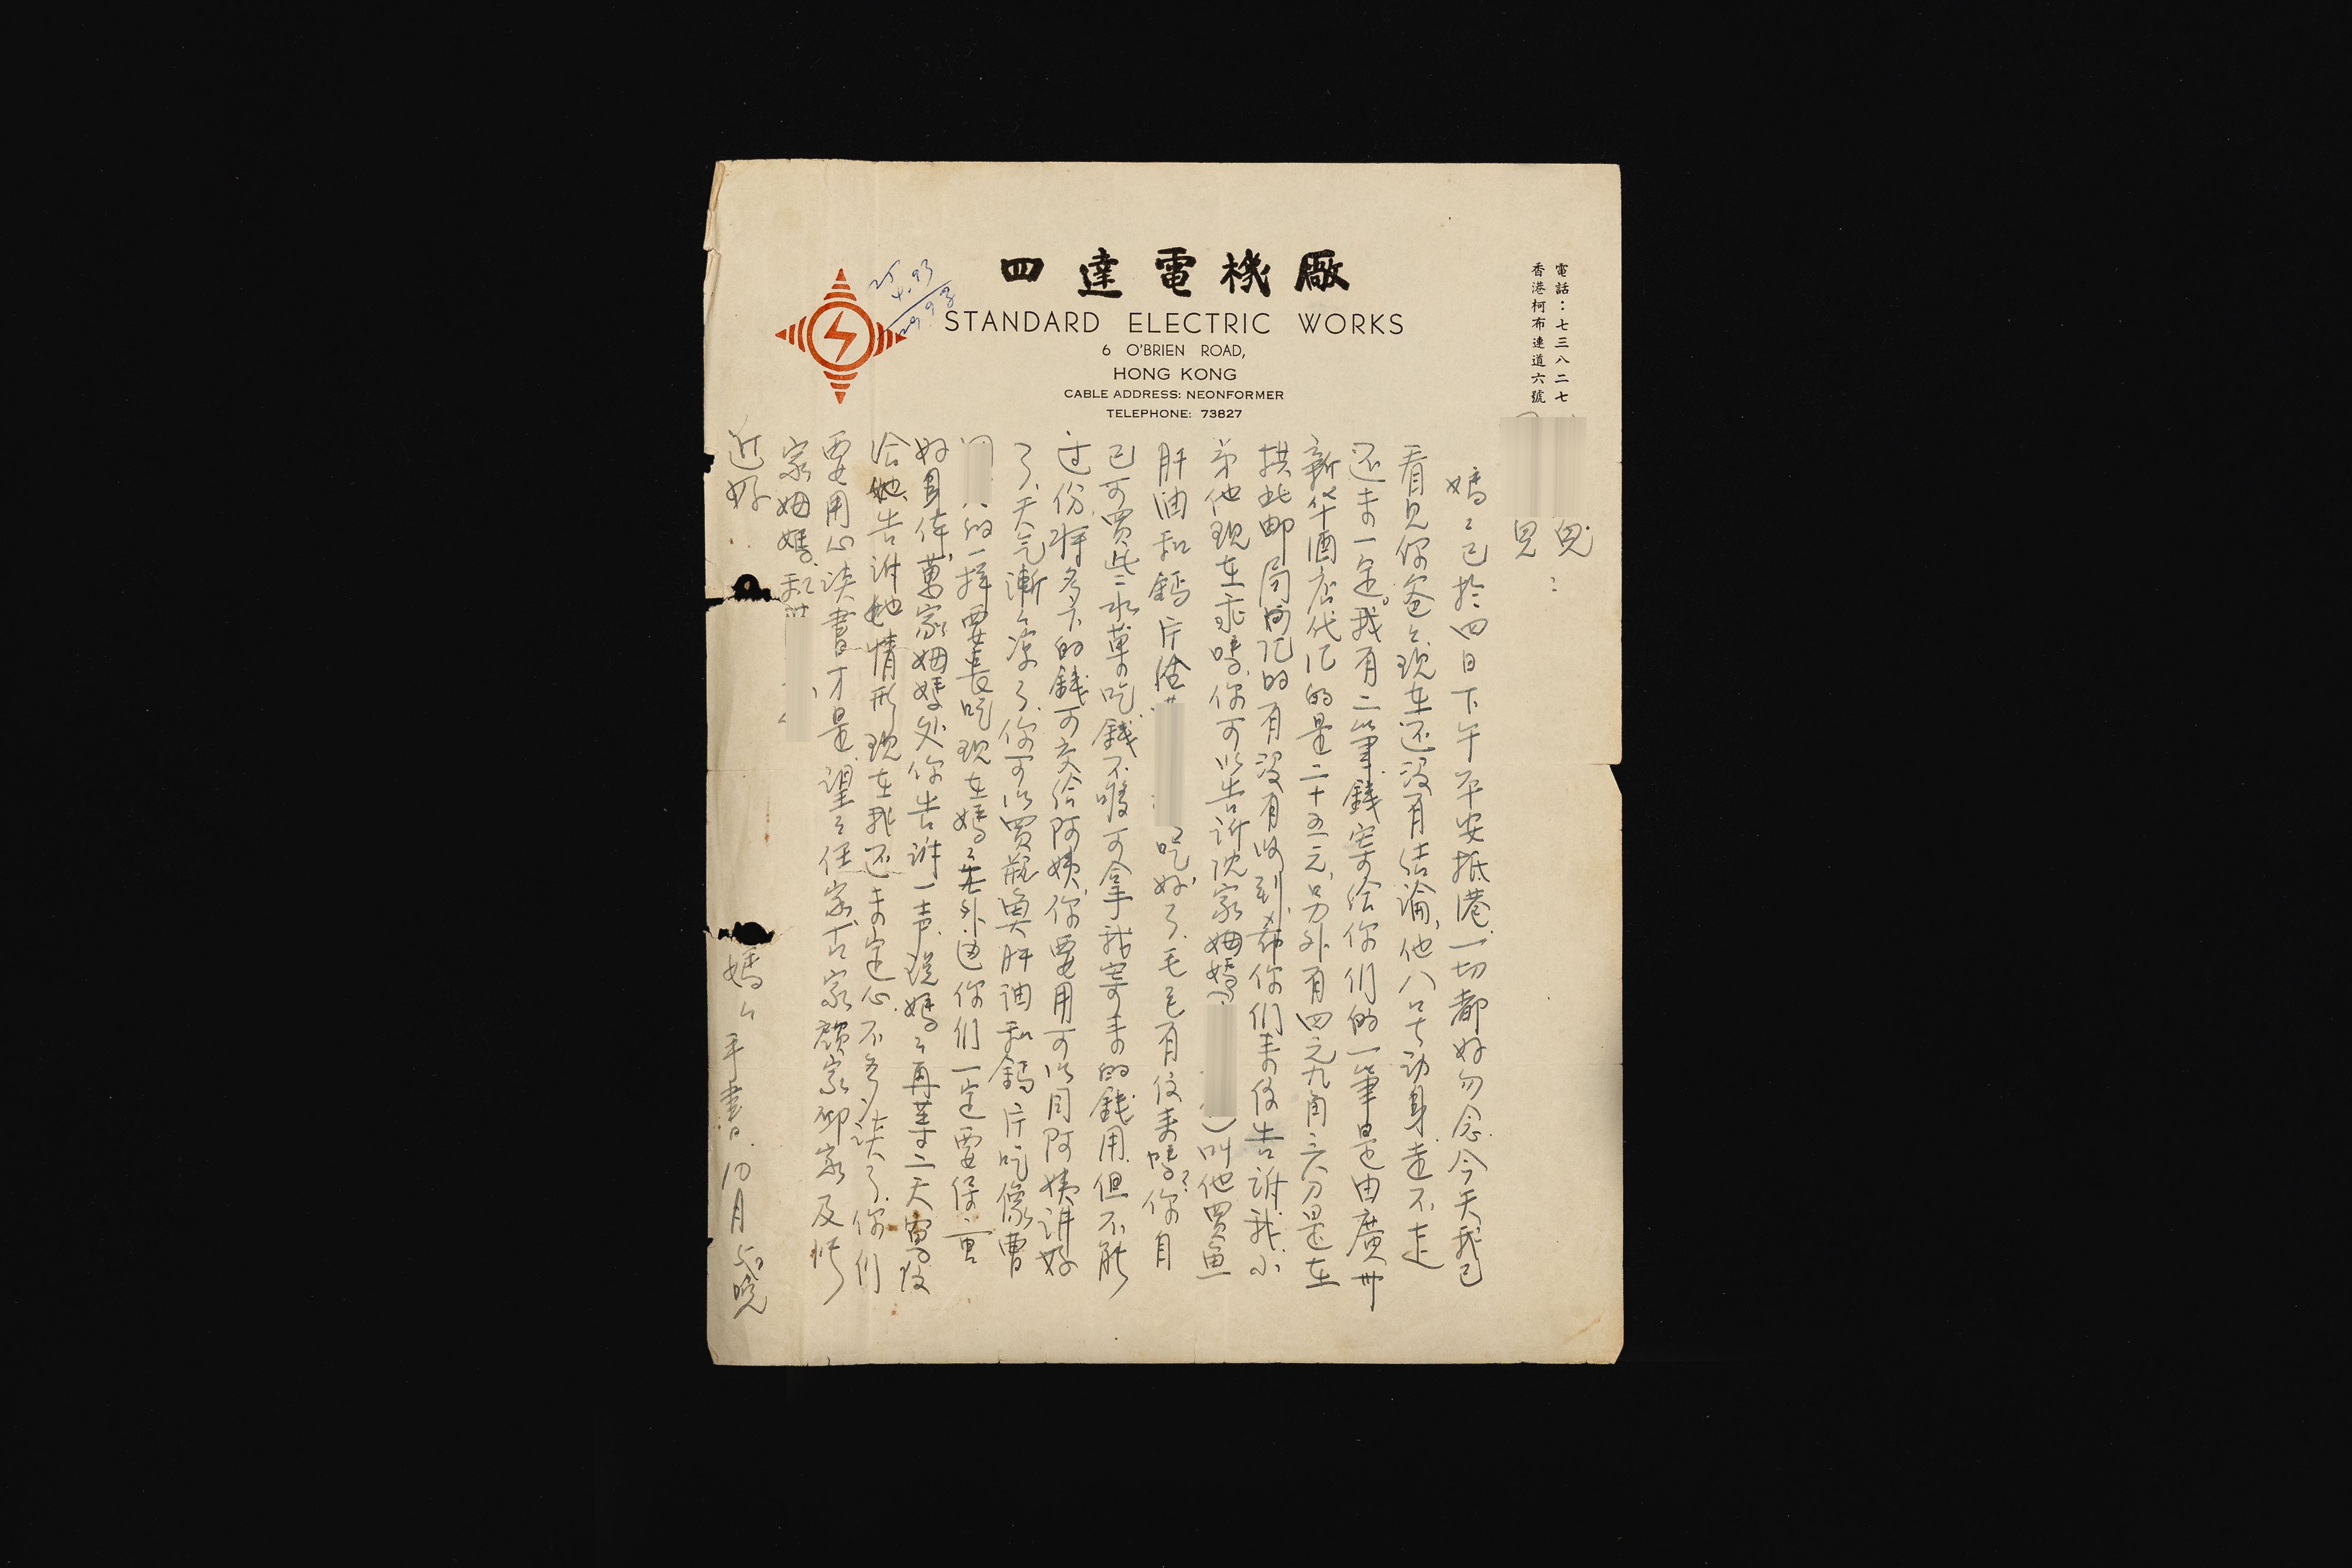 四達電機廠
STANDARD ELECTRIC WORKS
6 O'BRIEN ROAD,
HONG KONG
CABLE ADDRESS: NEONFORMER
TELEPHONE: 73827
電話：七三八二七
香港柯布連道六號
25
4.93
29.93
兒
兒：
媽々已於四日下午平安抵港一切都好勿念今天我已
看見你爸々現在还没有结論，他八号动身走不走
还未一定。我有二笔錢寄给你们的一筆是由廣州
新华酒店代汇的是二十五元，另外有四元九角三分是在
拱北邮局汇的有没有收到，你们来信告訴我小
弟他现在乖嗎，你可以告訴沈家姆媽（ ）叫他買魚
肝油和鈣片给 吃好了，毛毛有信来嗎？你自
已可買些水菓吃錢不够可拿我寄来的錢用，但不能
过份，將多下的錢可交给阿姨，你要用可以同阿姨讲好
了，天气漸々凉了，你可以買瓶魚肝油和鈣片吃像曹
的一样要長吃现在媽々在外边你们一定要保重
好身体，萬家姆媽处你告訴一声，説媽々再等二天写信
给她，告訴她情形现在我还未定心，不多談了，你们
要用心读書才是，望々任家，古家顏家邱家及
家姆媽和
近好
媽々手書 10月5日晚